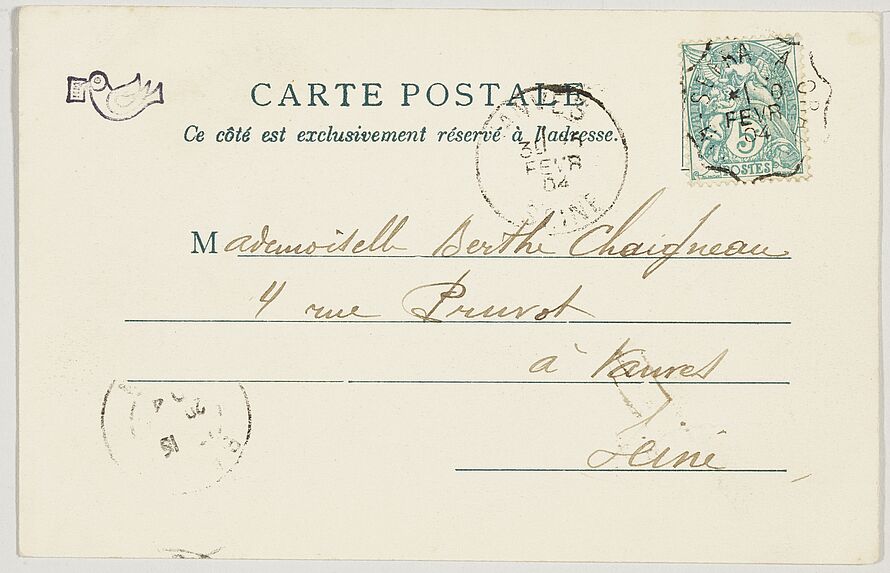 CARTE POSTALE
Ce côté est exclusivement réservé à l'adresse.
Mademoiselle Berthe Chaigneau
4 rue Pruvot
à Vanves
Seine
FEVR
04
5
POSTES
VANVES
FEVR
04
SEINE